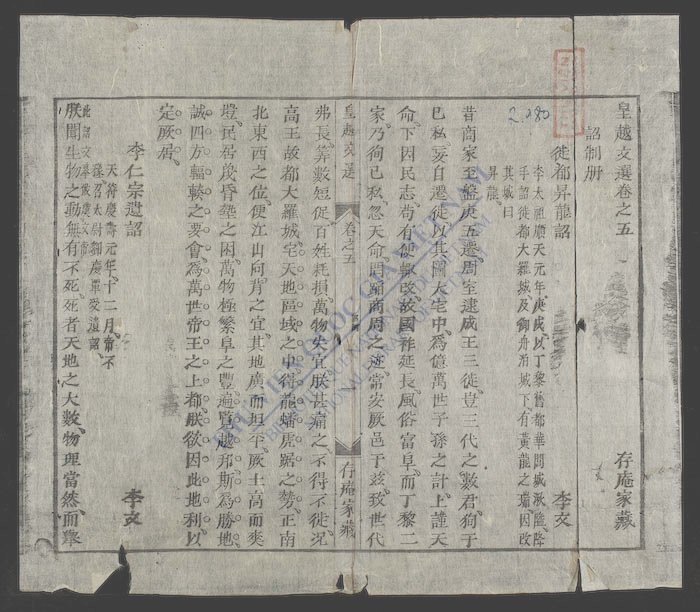 皇越文選卷之五
存庵家藏
詔制册
徙都昇龍詔
李文
李太祖順天元年庚戌以丁黎舊都華閭城湫隘降
手詔徙都大羅城及御舟泊城下有黃龍之瑞因改
其城曰
昇龍
昔商家至盤庚五遷周室逮成王三徙豈三代之數君狥于
己私妄自遷徙以其圖大宅中爲億萬世子孫之計上謹天
命下因民志苟有便輒改故國祚延長風俗富阜而丁黎二
家乃狥己私忽天命罔蹈商周之迹常安厥邑于茲致世代
皇越文選
卷之五
存庵家藏
弗長算數短促百姓耗損萬物失宜朕甚痛之不得不徙况
高王故都大羅城宅天地區域之中得龍蟠虎踞之勢正南
北東西之位便江山向背之宜其地廣而坦平厥土高而爽
塏民居蔑昏墊之困萬物極繁阜之豐遍覽越邦斯爲勝地
誠四方輻輳之要會爲萬世帝王之上都朕欲因此地利以
定厥居
李仁宗遺詔
李文
天符慶壽元年十二月帝不
豫召太尉劉慶覃受遺詔
朕聞生物之動無有不死死者天地之大數物理當然而舉